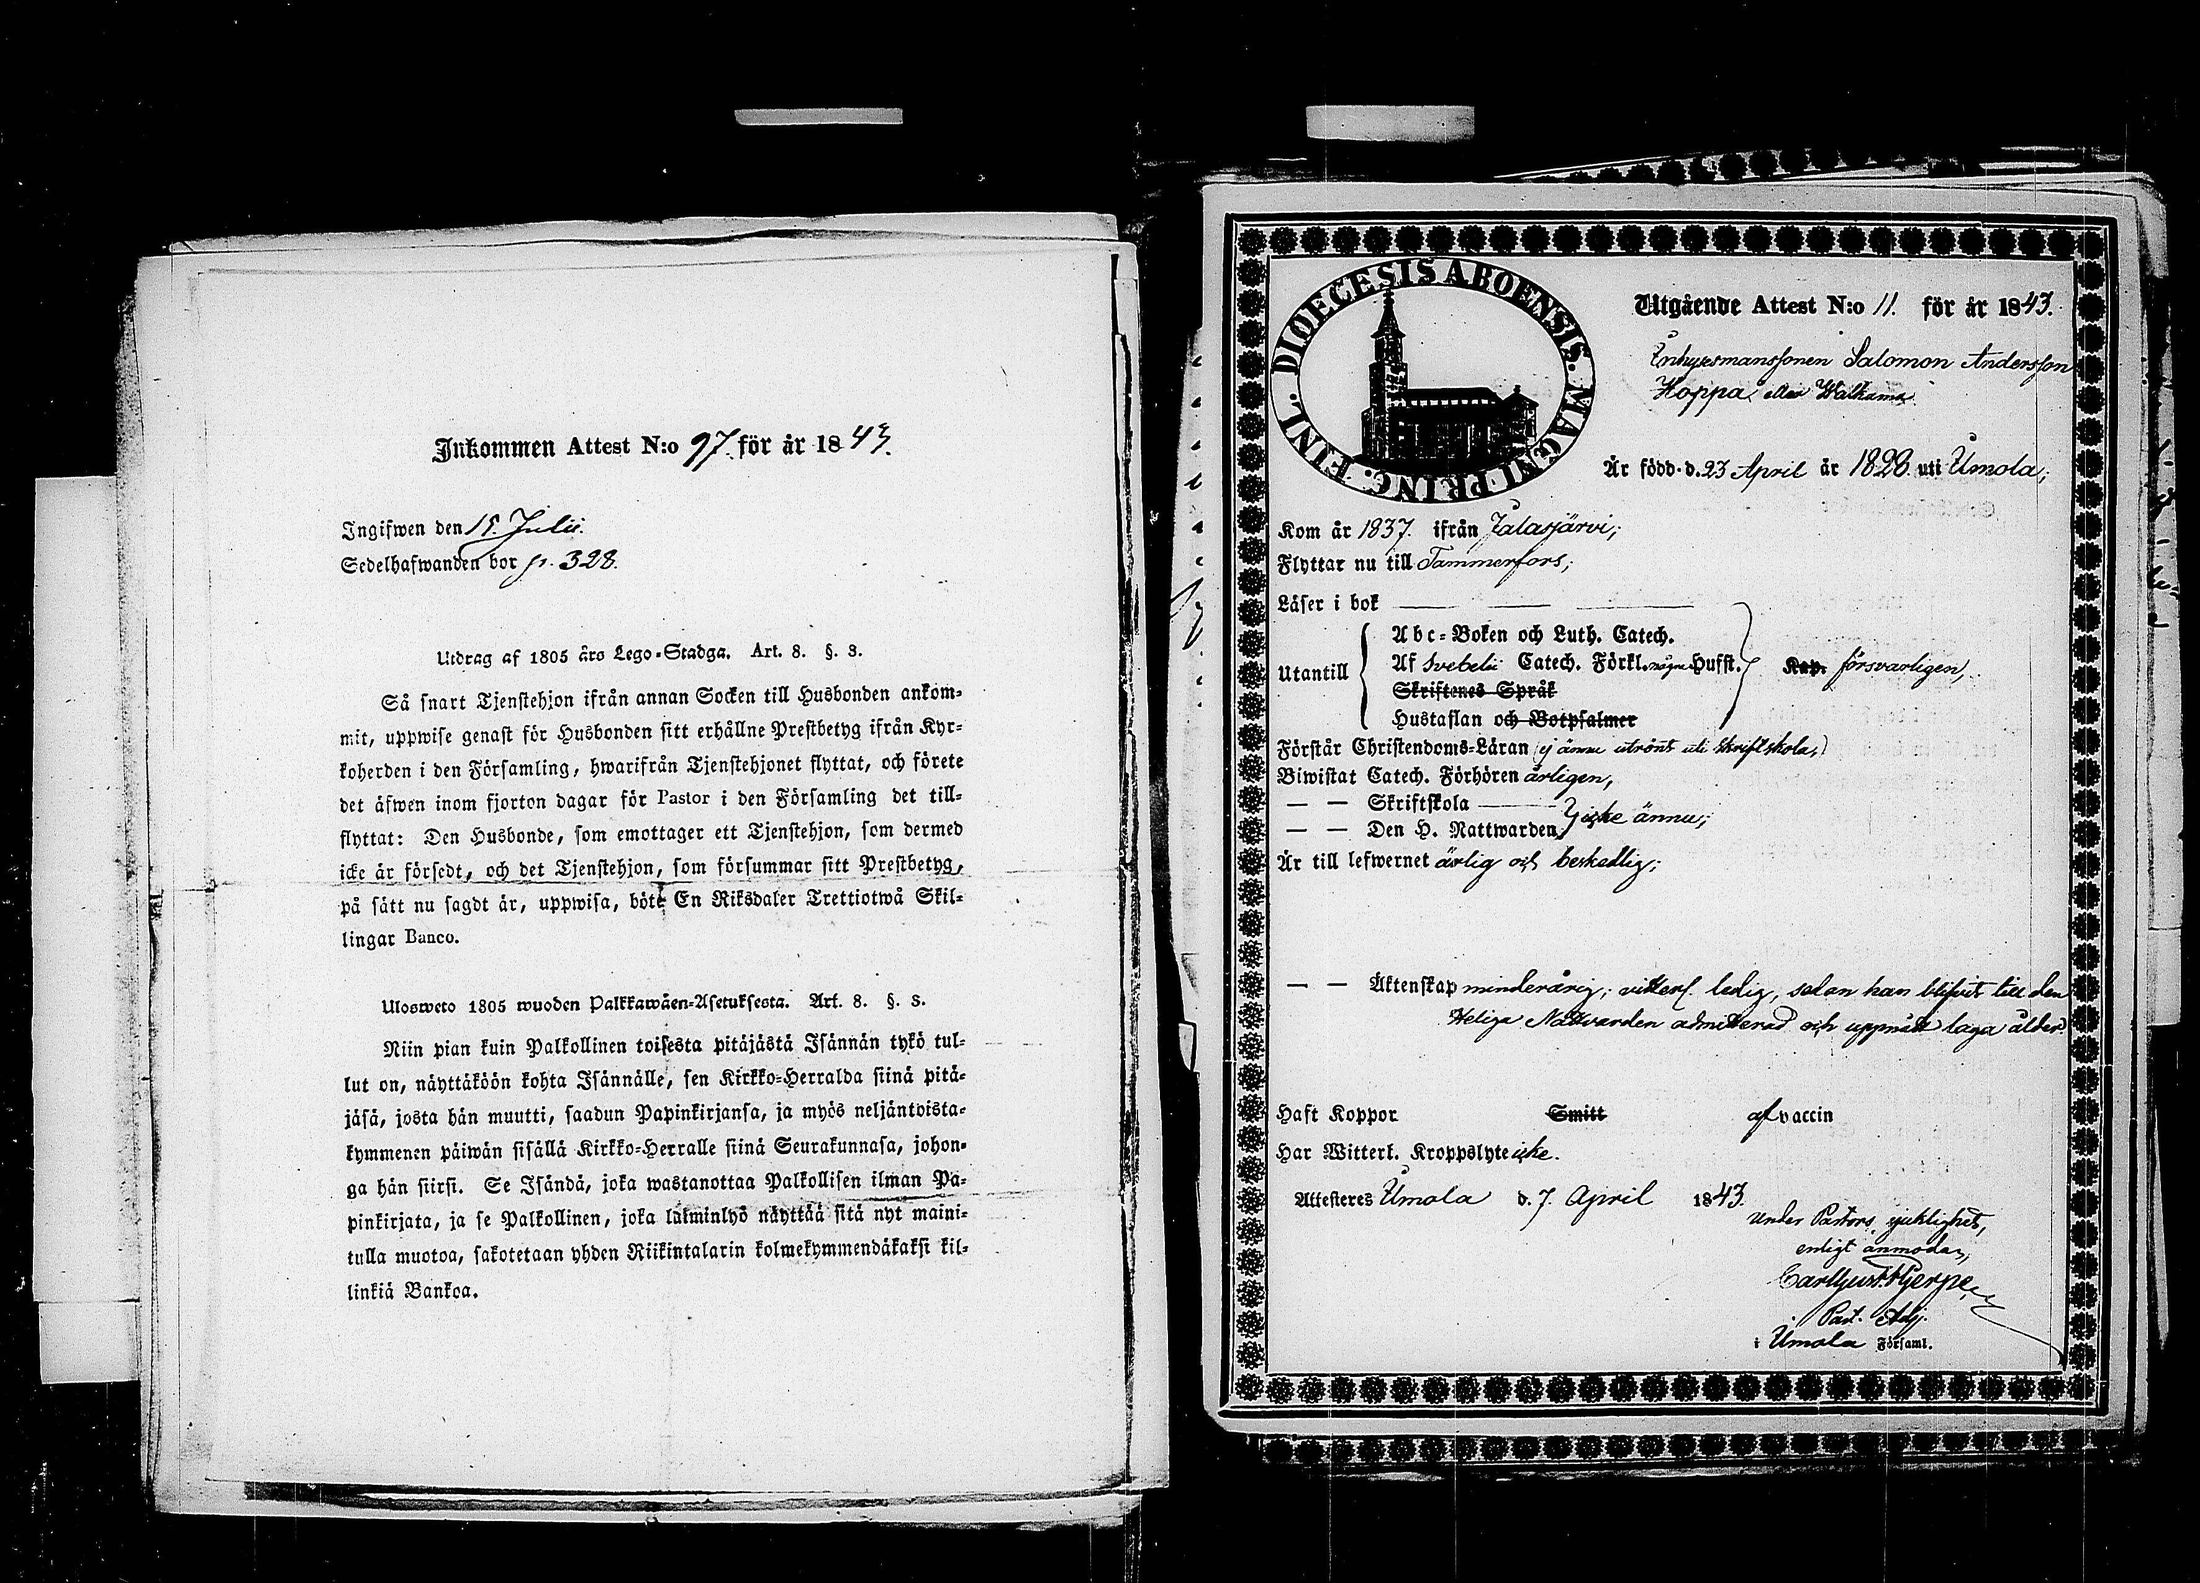 Inkommen Attest N:o 97. för år 1843.
Ingifwen den 15. Julii.
Sedelhafwanden bor p. 328.
Utdrag af 1805 års Lego-Stadga. Art. 8. §. 3.
Så snart Tjenstehjon ifrån annan Socken till Husbonden ankom-
mit, uppwise genast för Husbonden sitt erhållne Prestbetyg ifrån Kyr-
koherden i den Församling, hwarifrån Tjenstehjonet flyttat, och förete
det äfwen inom fjorton dagar för Pastor i den Församling det till-
flyttat: Den Husbonde, som emottager ett Tjenstehjon, som dermed
icke är försedt, och det Tjenstehjon, som försummar sitt Prestbetyg,
på sätt nu sagdt är, uppwisa, böte En Riksdaler Trettiotwå Skil-
lingar Banco.
Ulosweto 1805 wuoden Palkkawäen-Asetuksesta. Art. 8. §. 3.
Niin pian kuin Palkollinen toisesta pitäjästä Isännän tykö tul-
lut on, näyttäköön kohta Isännälle, sen Kirkko-Herralda siinä pitä-
jäsä, josta hän muutti, saadun Papinkirjansa, ja myös neljäntoista-
kymmenen päiwän sisällä Kirkko-Herralle siinä Seurakunnasa, johon-
ga hän siirsi. Se Isändä, joka wastanottaa Palkollisen ilman Pa-
pinkirjata, ja se Palkollinen, joka laiminlyö näyttää sitä nyt maini-
tulla muotoa, sakotetaan yhden Riikintalarin kolmekymmendäkaksi kil-
linkiä Bankoa.
DIOECESIS ABOENSIS. MAGNI PRINC. FINL.
Utgående Attest N:o 11. för år 1843.
Inhysesmanssonen Salomon Andersson
Hoppa eller Walkama
Är född d. 23 April år 1828. uti Umola;
Kom år 1837. ifrån Jalasjärvi;
Flyttar nu till Tammerfors;
Läser i bok
Abc-Boken och Luth. Catech.
Utantill Af Svebelii Catech. Förkl. några Hufst. Kap. försvarligen,
Skriftenes Språk
Hustaflan och Botpsalmer
Förstår Christendoms-Läran (ej ännu utrönt uti Skriftskola,)
Biwistat Catech. Förhören årligen,
— — Skriftskola
— — Den H. Nattwarden Icke ännu;
Är till lefwernet ärlig och beskedlig;
— — Äktenskap minderårig; vitterl. ledig, sedan han blifvit till den
Heliga Nattvarden admitterad och uppnått laga ålder
Haft Koppor Smitt af vaccin
Har Witterl. Kroppslyte icke.
Attesteras Umola d. 7. April 1843.
Under Pastors sjuklighet,
enligt anmodan,
Past. Adj.
i Umola Församl.